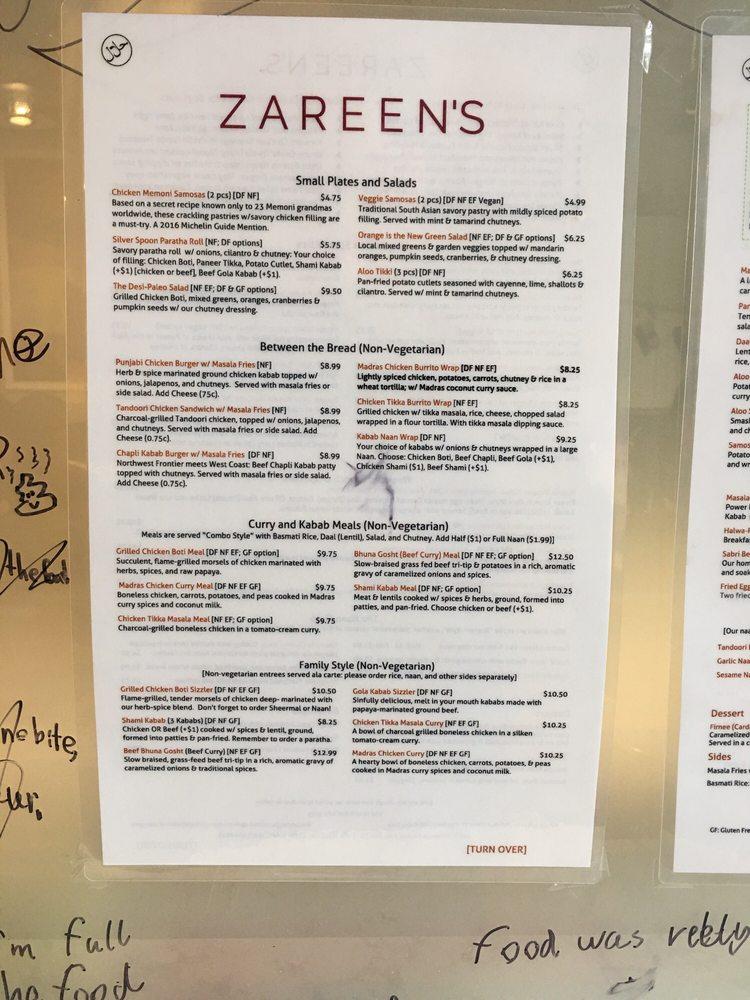 حلال
ZAREEN'S
Small Plates and Salads
Chicken Memoni Samosas (2 pcs) [DF NF] $4.75
Based on a secret recipe known only to 23 Memoni grandmas
worldwide, these crackling pastries w/savory chicken filling are
a must-try. A 2016 Michelin Guide Mention.
Silver Spoon Paratha Roll [NF; DF options] $5.75
Savory paratha roll w/ onions, cilantro & chutney: Your choice
of filling: Chicken Boti, Paneer Tikka, Potato Cutlet, Shami Kabab
(+$1) [chicken or beef], Beef Gola Kabab (+$1).
The Desi-Paleo Salad [NF EF; DF & GF options] $9.50
Grilled Chicken Boti, mixed greens, oranges, cranberries &
pumpkin seeds w/ our chutney dressing.
Veggie Samosas (2 pcs) [DF NF EF Vegan] $4.99
Traditional South Asian savory pastry with mildly spiced potato
filling. Served with mint & tamarind chutneys.
Orange is the New Green Salad [NF EF; DF & GF options] $6.25
Local mixed greens & garden veggies topped w/ mandarin
oranges, pumpkin seeds, cranberries, & chutney dressing.
Aloo Tikki (3 pcs) [DF NF] $6.25
Pan-fried potato cutlets seasoned with cayenne, lime, shallots &
cilantro. Served w/ mint & tamarind chutneys.
Between the Bread (Non-Vegetarian)
Punjabi Chicken Burger w/ Masala Fries [NF] $8.99
Herb & spice marinated ground chicken kabab topped w/
onions, jalapenos, and chutneys. Served with masala fries or
side salad. Add Cheese (75c).
Tandoori Chicken Sandwich w/ Masala Fries [NF] $8.99
Charcoal-grilled Tandoori chicken, topped w/ onions, jalapenos,
and chutneys. Served w/ masala fries or side salad. Add
Cheese (0.75c).
Chapli Kabab Burger w/ Masala Fries [DF NF] $8.99
Northwest Frontier meets West Coast: Beef Chapli Kabab patty
topped with chutneys. Served w/ masala fries or side salad.
Add Cheese (0.75c).
Madras Chicken Burrito Wrap [DF NF EF] $8.25
Lightly spiced chicken, potatoes, carrots, chutney & rice in a
wheat tortilla; w/ Madras coconut curry sauce.
Chicken Tikka Burrito Wrap [NF EF] $8.25
Grilled chicken w/ tikka masala, rice, cheese, chopped salad
wrapped in a flour tortilla. With tikka masala dipping sauce.
Kabab Naan Wrap [DF NF] $9.25
Your choice of kababs w/ onions & chutneys wrapped in a large
Naan. Choose: Chicken Boti, Beef Chapli, Beef Gola (+$1),
Chicken Shami ($1), Beef Shami (+$1).
Curry and Kabab Meals (Non-Vegetarian)
Meals are served "Combo Style" with Basmati Rice, Daal (Lentil), Salad, and Chutney. Add Half ($1) or Full Naan ($1.99)]
Grilled Chicken Boti Meal [DF NF EF; GF option] $9.75
Succulent, flame-grilled morsels of chicken marinated with
herbs, spices, and raw papaya.
Madras Chicken Curry Meal [DF NF EF GF] $9.75
Boneless chicken, carrots, potatoes, and peas cooked in Madras
curry spices and coconut milk.
Chicken Tikka Masala Meal [NF EF; GF option] $9.75
Charcoal-grilled boneless chicken in a tomato-cream curry.
Bhuna Gosht (Beef Curry) Meal [DF NF EF; GF option] $12.50
Slow-braised grass fed beef tri-tip & potatoes in a rich, aromatic
gravy of caramelized onions and spices.
Shami Kabab Meal [DF NF; GF option] $10.25
Meat & lentils cooked w/ spices & herbs, ground, formed into
patties, and pan-fried. Choose chicken or beef (+$1).
Family Style (Non-Vegetarian)
[Non-vegetarian entrees served ala carte: please order rice, naan, and other sides separately]
Grilled Chicken Boti Sizzler [DF NF EF GF] $10.50
Flame-grilled, tender morsels of chicken deep- marinated with
our herb-spice blend. Don't forget to order Sheermal or Naan!
Shami Kabab (3 Kababs) [DF NF GF] $8.25
Chicken OR Beef (+$1) cooked w/ spices & lentil, ground,
formed into patties & pan-fried. Remember to order a paratha.
Beef Bhuna Gosht (Beef Curry) [NF EF GF] $12.99
Slow braised, grass-feed beef tri-tip in a rich, aromatic gravy of
caramelized onions & traditional spices.
Gola Kabab Sizzler [DF NF GF] $10.50
Sinfully delicious, melt in your mouth kababs made with
papaya-marinated ground beef.
Chicken Tikka Masala Curry [NF EF GF] $10.25
A bowl of charcoal grilled boneless chicken in a silken
tomato-cream curry.
Madras Chicken Curry [DF NF EF GF] $10.25
A hearty bowl of boneless chicken, carrots, potatoes, & peas
cooked in Madras curry spices and coconut milk.
[TURN OVER]
Daa
Lent
rice,
Aloo
Potat
curry
Aloo
Smas
and ch
Samos
Potato
and w
Masala
Power
Kabab
Halwa-
Breakfa
Sabri Be
Our hom
and soak
Fried Egg
Two fried
[Our na
Tandoori
Garlic Naa
Sesame Na
Dessert
Firnee (Car
Caramelized
Served in a c
Sides
Masala Fries
Basmati Rice:
GF: Gluten Fre
bite,
I'm full
food
Food was